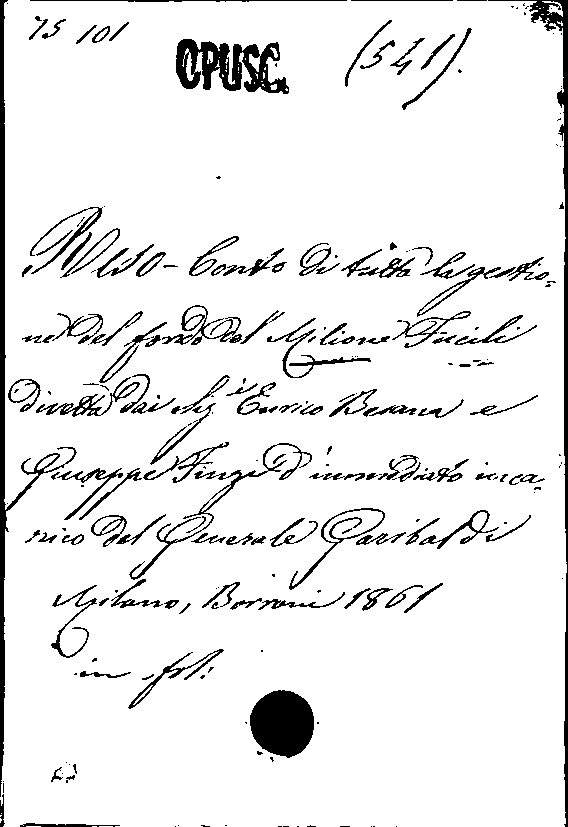 75 101
OPUSC.
(541).
RESO-Conto di tutta la gestio-
ne del fondo del Milione Fucili
diretta dai Sig.i Enrico Besana e
Giuseppe Finzi d'immediato inca-
rico del Generale Garibaldi
Milano, Borroni 1861
in fol: